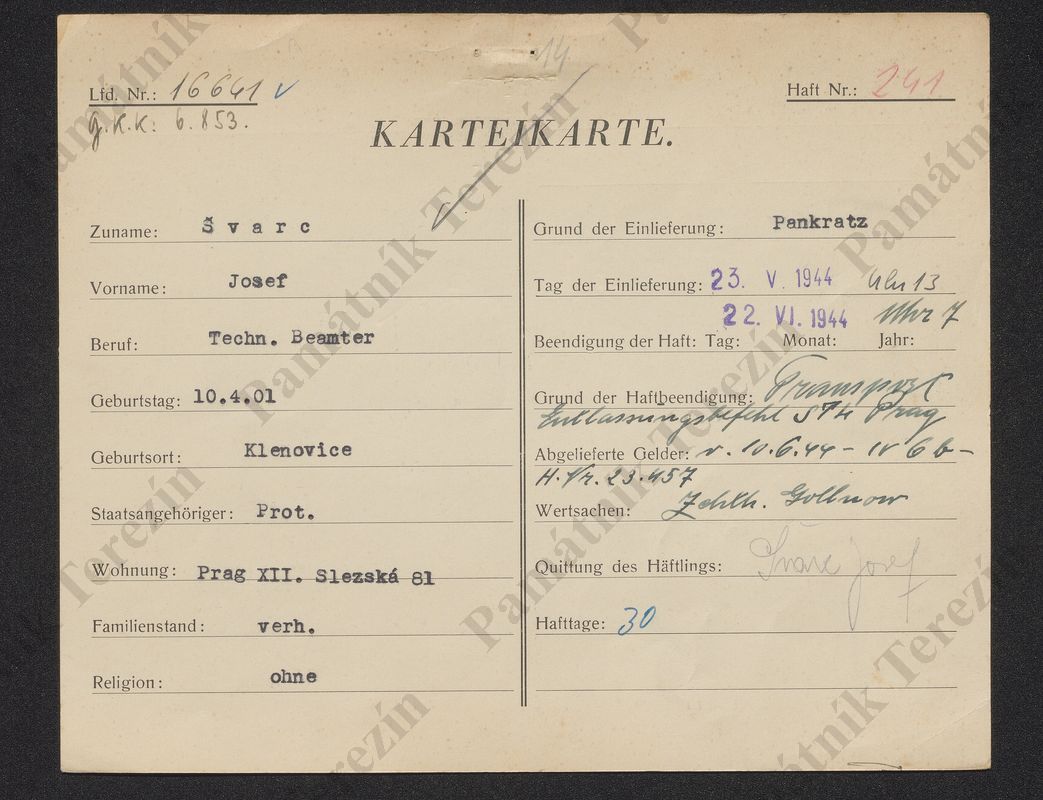 14
Lfd. Nr.: 16641 v
Haft Nr.: 241
g.K.K: 6.853.
KARTEIKARTE.
Zuname: Švarc
Vorname: Josef
Beruf: Techn. Beamter
Geburtstag: 10.4.01
Geburtsort: Klenovice
Staatsangehöriger: Prot.
Wohnung: Prag XII. Slezská 81
Familienstand: verh.
Religion: ohne
Grund der Einlieferung: Pankratz
Tag der Einlieferung: 23. V. 1944 Uhr 13
22. VI. 1944 Uhr 7
Beendigung der Haft: Tag: Monat: Jahr:
Grund der Haftbeendigung: Transport
Entlassungsbefehl Prag
Abgelieferte Gelder: v. 10.6.44 – IV 6 b –
H.Nr. 23.457
Wertsachen: Zchth. Gollnow
Quittung des Häftlings: Švarc Josef
Hafttage: 30
Památník Terezín
Památník Terezín
Památník Terezín
Památník Terezín
Památník Terezín